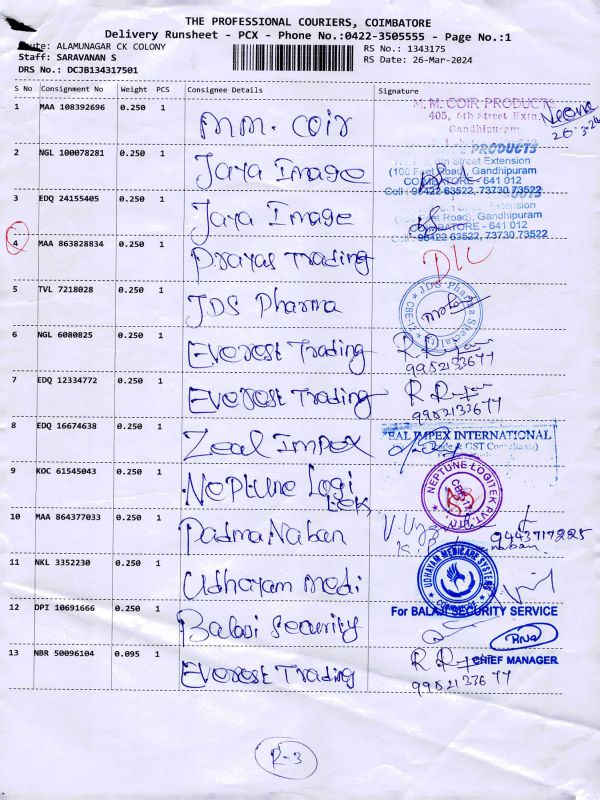 THE PROFESSIONAL COURIERS, COIMBATORE
Delivery Runsheet - PCX - Phone No.:0422-3505555 - Page No.:1
Route: ALAMUNAGAR CK COLONY
RS No.: 1343175
Staff: SARAVANAN S
RS Date: 26-Mar-2024
DRS No.: DCJB134317501
S No Consignment No Weight PCS Consignee Details Signature
1 MAA 108392696 0.250 1 MM. Coir
M. M. COIR PRODUCTS
405, 6th Street Extn.
Gandhipuram
2 NGL 100078281 0.250 1 Jaya Image
PRODUCTS
6th Street Extension
(100 Feet Road), Gandhipuram
COIMBATORE - 641 012
Cell : 98422 63522, 73730 73522
3 EDQ 24155405 0.250 1 Jaya Image
Street Extension
(100 Feet Road), Gandhipuram
COIMBATORE - 641 012
Cell : 98422 63522, 73730 73522
4 MAA 863828834 0.250 1 Prayas Trading
D/L
5 TVL 7218028 0.250 1 JDS Pharma
JDS-Pharma Speciality
CBE-12
6 NGL 6080825 0.250 1 Everest Trading
9952133677
7 EDQ 12334772 0.250 1 Everest Trading
9952133677
8 EDQ 16674638 0.250 1 Zeal Impex
ZEAL IMPEX INTERNATIONAL
& GST Consultants)
9 KOC 61545043 0.250 1 Neptune Logi
tek
NEPTUNE LOGITEK PVT. LTD
10 MAA 864377033 0.250 1 PadmaNaban
9443717225
11 NKL 3352230 0.250 1 Udhayam medi
UDHAYAM MEDICARE SYSTEMS
12 DPI 10691666 0.250 1 Balaji Security
For BALAJI SECURITY SERVICE
CHIEF MANAGER
13 NBR 50096104 0.095 1 Everest Trading
9952133677
R-3